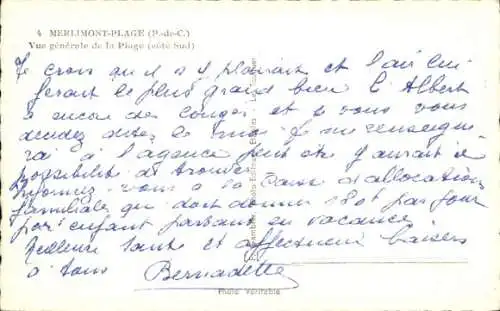 4 MERLIMONT-PLAGE (P.-de-C.)
Vue générale de la Plage (côté Sud)
Je crois qu'il s'y plairait et l'air lui
ferait le plus grand bien si Albert
a encore des congés et si vous vous
decidez dites le moi. Je me renseigne-
rai à l'agence peut être y aurait il
possibilité de trouver
informez vous à la Caisse d'allocations
familiale qui doit donner 180f par jour
par enfant partant en vacance
Meilleure santé et affectueux baisers
à tous Bernadette
Photo véritable